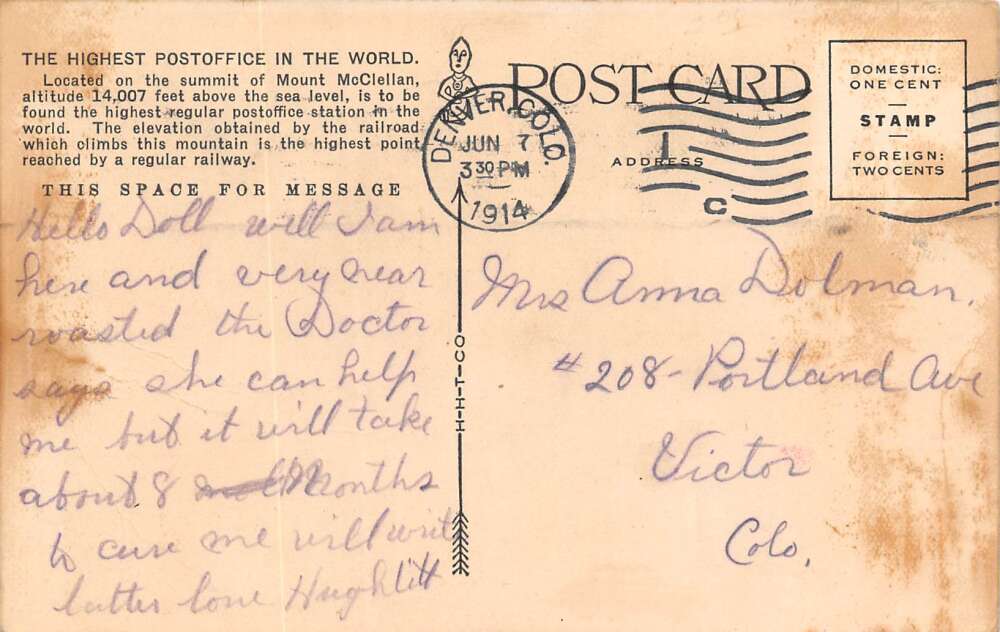 THE HIGHEST POSTOFFICE IN THE WORLD.
Located on the summit of Mount McClellan,
altitude 14,007 feet above the sea level, is to be
found the highest regular postoffice station in the
world. The elevation obtained by the railroad
which climbs this mountain is the highest point
reached by a regular railway.
THIS SPACE FOR MESSAGE
Hello Doll well I am
here and very near
roasted the Doctor
says she can help
me but it will take
about 8 months
to cure me will write
latter love Hugh
H-H-T-CO
POST CARD
ADDRESS
DENVER, COLO.
JUN 7
3 30 PM
1914
1
C
DOMESTIC:
ONE CENT
STAMP
FOREIGN:
TWO CENTS
Mrs Anna Dolman.
#208- Portland Ave
Victor
Colo.